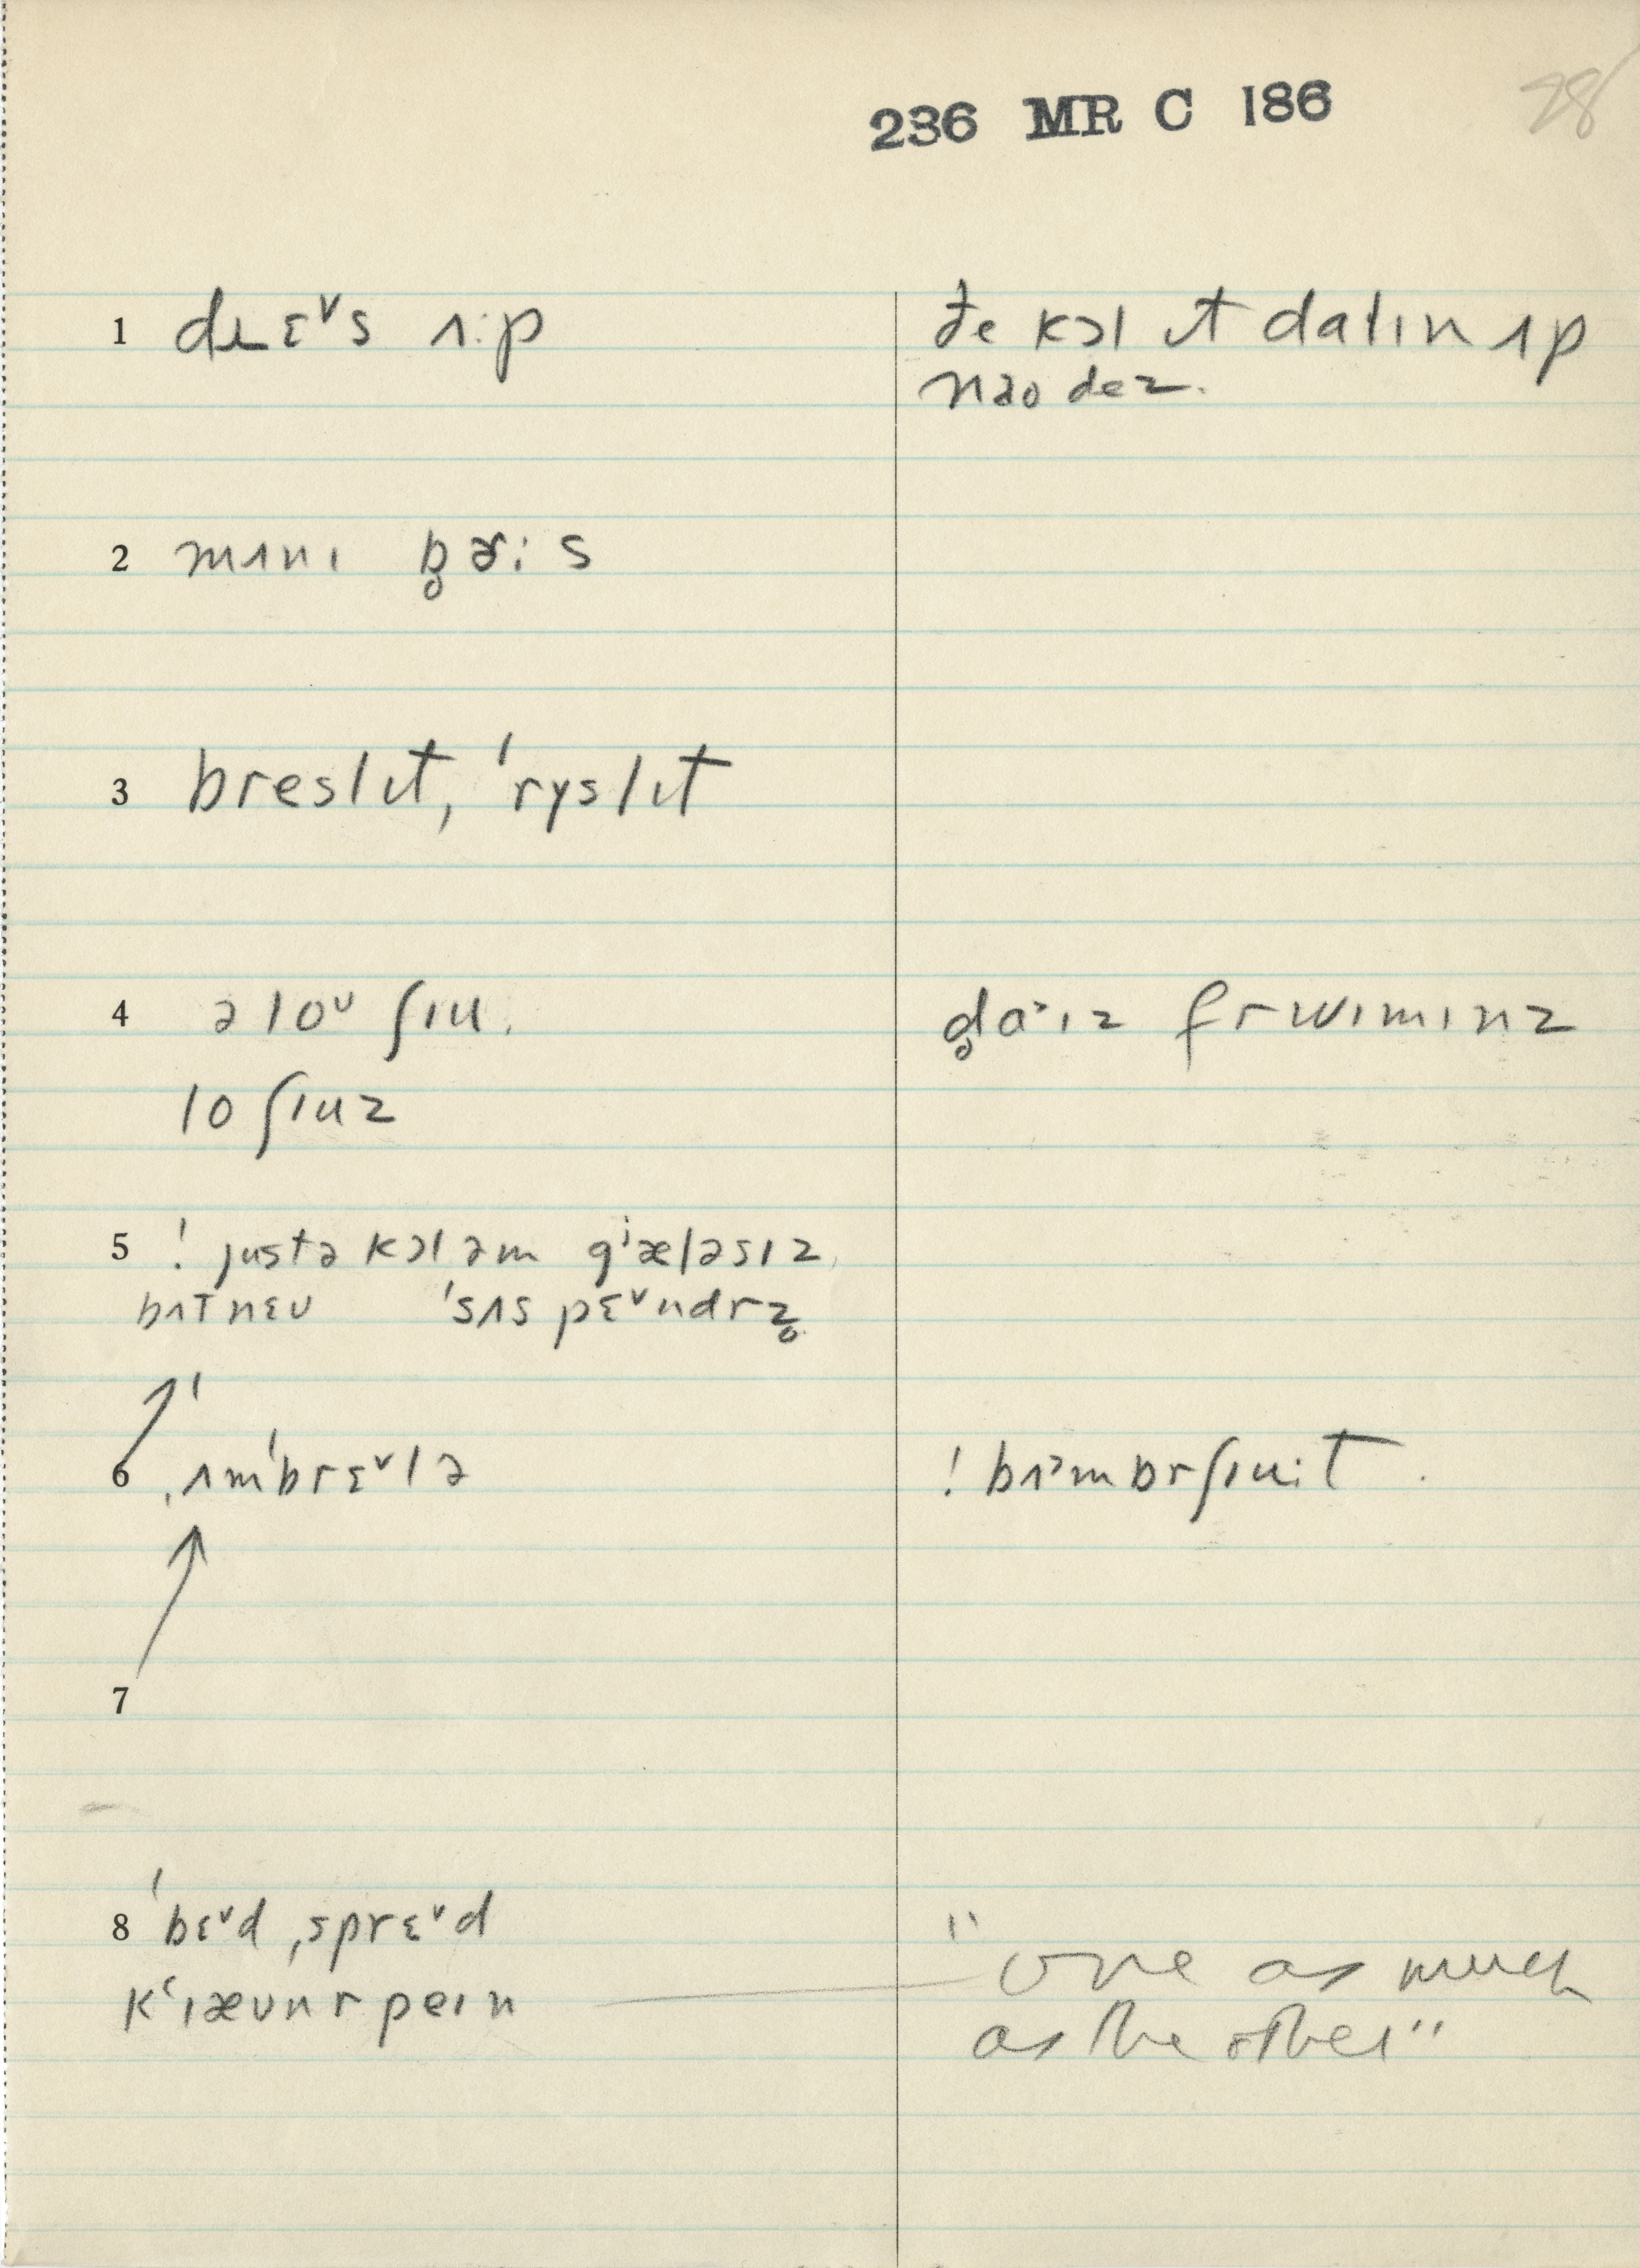 236 MR C 186
28
1 dɹɛˇs ʌ:p
ðe kɔl ɪt dalɪn ʌp
nao dez.
2 mʌnɪ b̥ɚ:s
3 breslɪt, ˈryslɪt
4 ə loᶸ ʃɪu.
d̥aᵊɪz fr wɪmɪnz
lo ʃɪuz
5 ! justə kɔl əm gʲæləsɪz
bʌt nɛu ˈsʌspɛˇndrz̥
6 ˌʌmˈbrɛˇlə
! bʌᵊmbrʃɪu:t.
7
8 ˈbɛˇd ˌsprɛˇd
kʻɪæʊnr peɪn
"one as much
as the other"